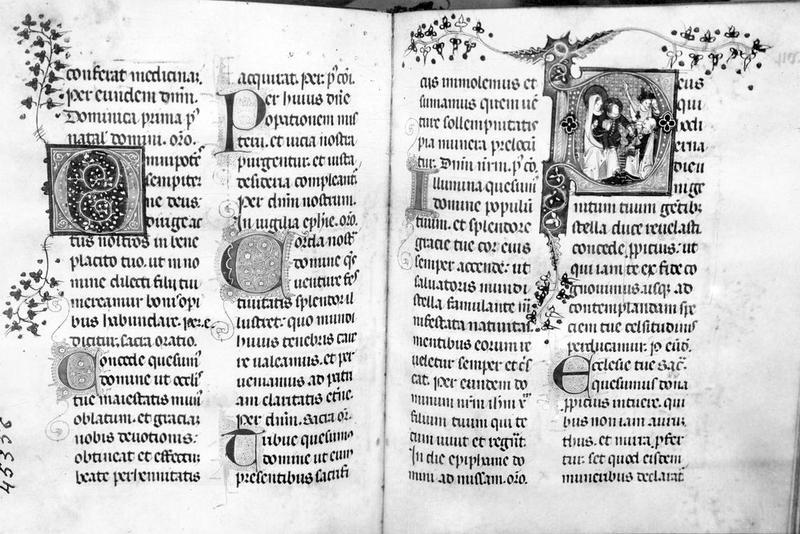 conferat medicinaꝫ.
Per eundem dnm̄.
Dominica prima pꝰ
natal̄ domini. oro.
Omnipotē
sempiter
ne deus:
dirige ac
tus nostros in bene
placito tuo. ut in no
mine dilecti filii tui
mereamur bonis opi
bus habundare. per. e
dicitur. sacra oratio.
Concede quesumꝰ
domine ut oculis
tue maiestatis munꝰ
oblatum. et gratiam
nobis deuotionis:
obtineat et effectum
beate perhennitatis
acquirat. per. p̄ cōi.
Per huius dn̄e
operationem mis
terii. et uicia nostra
purgentur. et iusta
desideria compleant̄.
per dnm̄ nostrum.
In uigilia ephie. oro.
Corda nostꝰ
domine qs̄
uenture fes
tiuitatis splendor il
lustret: quo mundi
huius tenebris care
re ualeamus. et per
ueniamus ad patri
am claritatis et̄ne.
per dnm̄. sacra or.
Tribue quesumꝰ
domine ut eum
presentibus sacrifi
ciis immolemus et
sumamus quem uē
ture sollempnitatis
pia munera prelocū
tur. Dnm̄ nr̄m. p̄ cō.
Illumina quesumꝰ
domine populū
tuum. et splendore
gracie tue cor eius
semper accende: ut
saluatoris mundi
stella famulante m̄
nifestata natiuitas.
mentibus eorum re
ueletur semper et c̄s
cat. per eundem do
minum nr̄m ihm̄ xp̄m
filium tuum qui te
cum uiuit et regn̄t.
In die epiphanie do
mini ad missam. oro.
Deus
qui
hodi
erna
die u
nige
nitum tuum gētibꝫ
stella duce reuelasti
concede ꝓpicius: ut
qui iam te ex fide co
gnouimus. usqꝫ ad
contemplandam spe
ciem tue celsitudinis
perducamur. p̄ eūd.
Ecclesie tue sac̄.
quesumus dona
ꝓpicius intuere. qui
bus non iam aurū.
thus. et mirra. ꝓfer
tur. set quod eisdem
muneribus declarat̄
45336